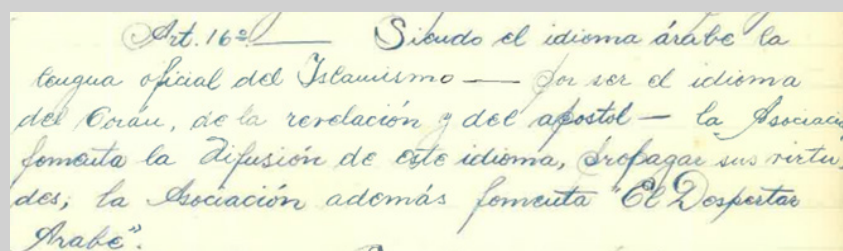 Art. 16º — Siendo el idioma árabe la
lengua oficial del Islamismo — por ser el idioma
del Corán, de la revelación y del apostol — la Asociació
fomenta la difusión de este idioma, propagar sus virtu
des; la Asociación además fomenta "El Despertar
Arabe".